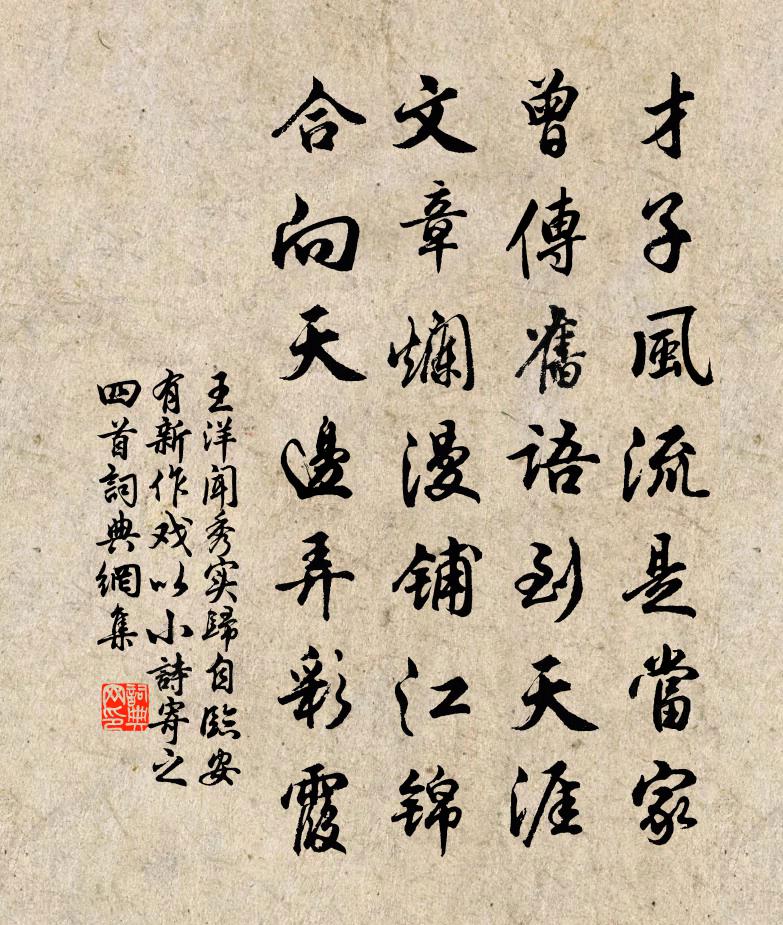 才子風流是當家
曾傳舊語到天涯
文章爛漫铺江锦
合向天邊弄彩霞
王洋闻秀实歸自臨安
有新作戏以小詩寄之
四首詞典網集
詞典
网印